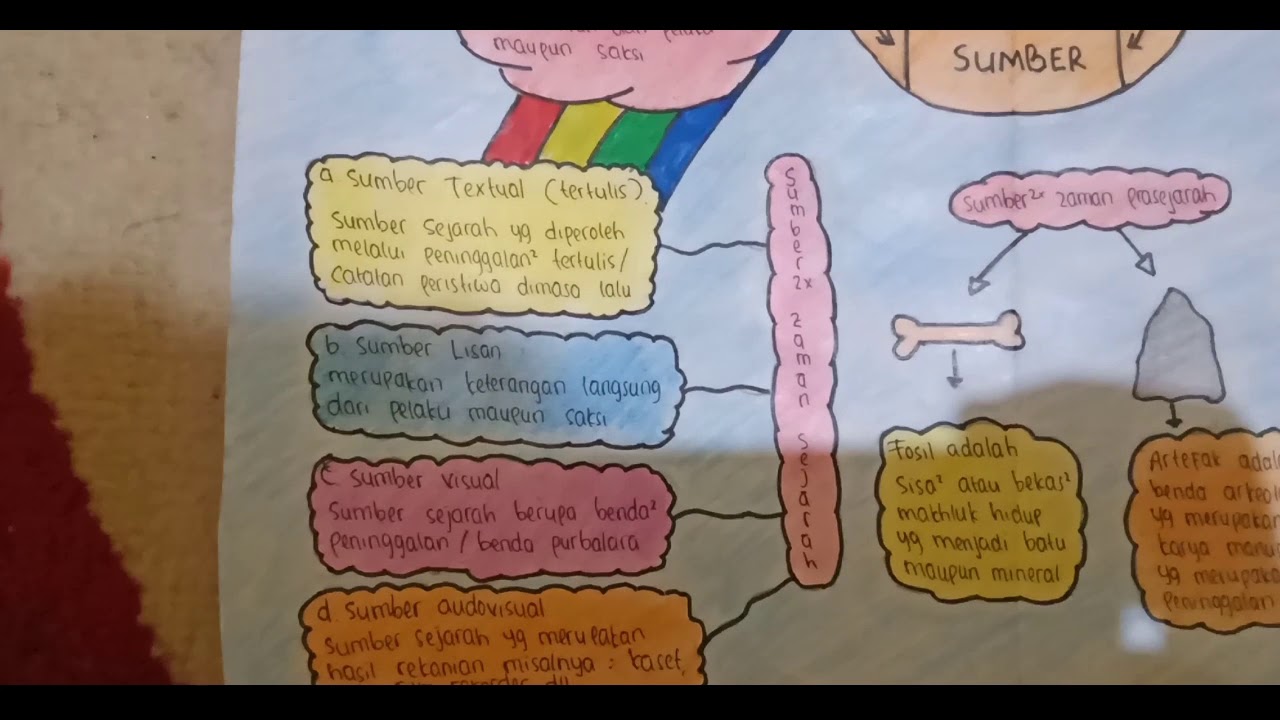 maupun saksi
SUMBER
a Sumber Textual (tertulis).
sumber sejarah yg diperoleh
melalui peninggalan² tertulis/
catatan peristiwa dimasa lalu
b. Sumber Lisan
merupakan keterangan langsung
dari pelaku maupun saksi
c Sumber visual
Sumber sejarah berupa benda²
peninggalan / benda purbalara
d. Sumber audovisual
sumber sejarah yg merupakan
hasil rekanian misalnya : kaset,
Sumber 2x zaman sejarah
sumber²ˣ zaman prasejarah
Fosil adalah
sisa² atau bekas²
makhluk hidup
yg menjadi batu
maupun mineral
Artefak
benda
yg
karya
yg
peninggalan